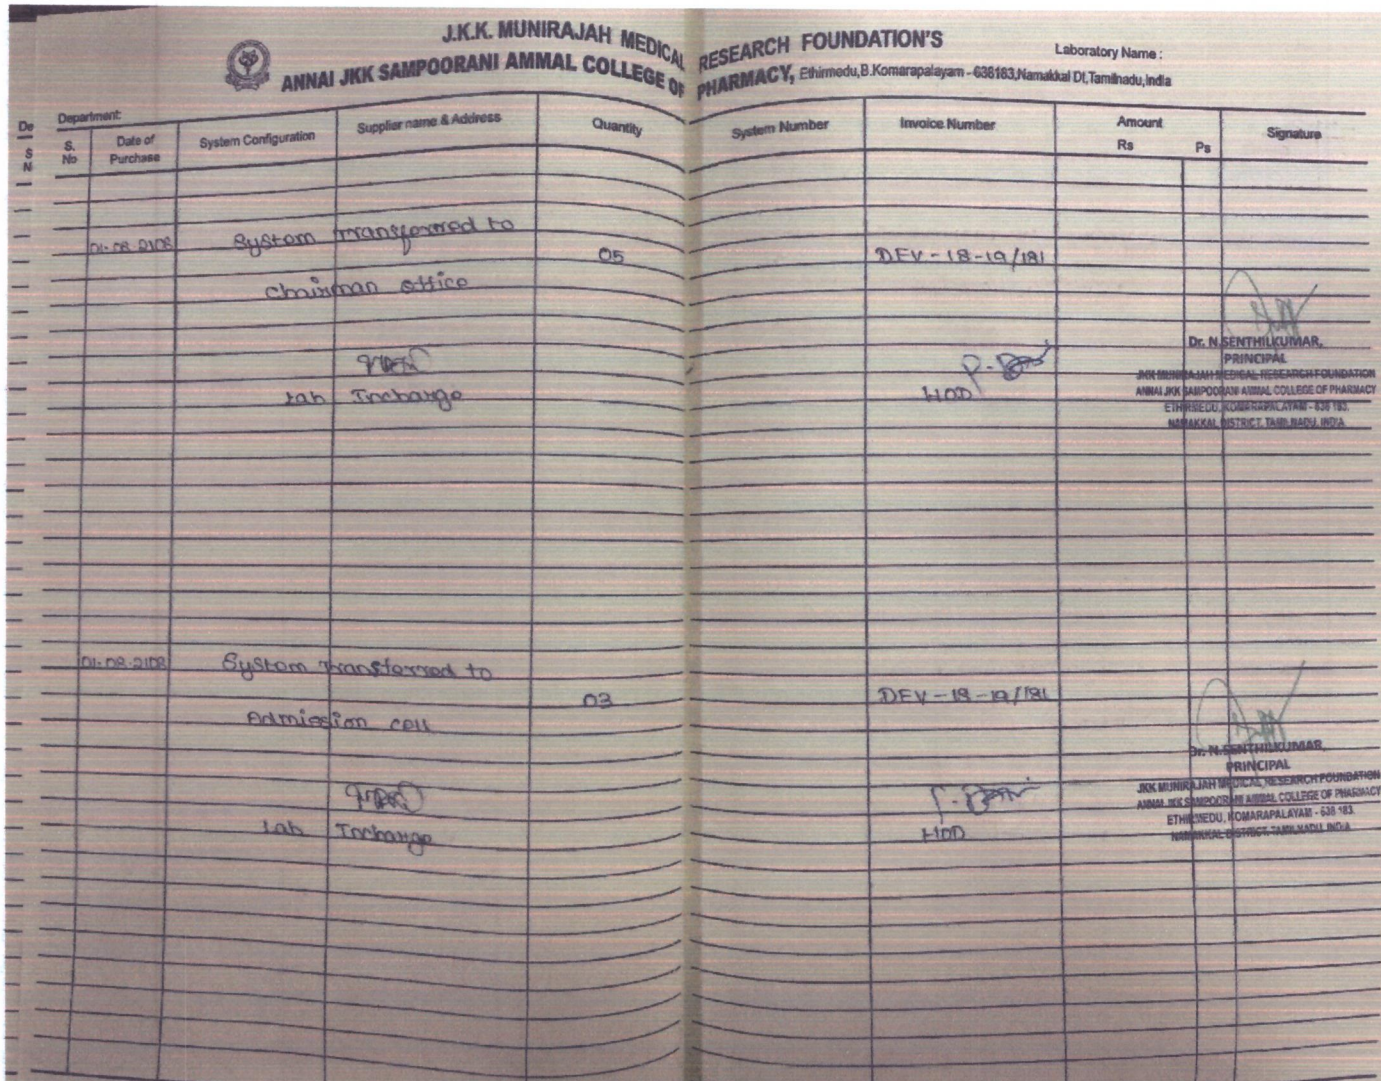 J.K.K. MUNIRAJAH MEDICAL RESEARCH FOUNDATION'S
ANNAI JKK SAMPOORANI AMMAL COLLEGE OF PHARMACY, Ethirmedu,B.Komarapalayam - 638183,Namakkal Dt,Tamilnadu,India
Laboratory Name :
De
Department:
S
N
S. No
Date of Purchase
System Configuration
Supplier name & Address
Quantity
System Number
Invoice Number
Amount
Rs
Ps
Signature
01-08-2108 System transferred to
05 DEV-18-19/181
Chairman office
Dr. N.SENTHILKUMAR,
PRINCIPAL
JKK MUNIRAJAH MEDICAL RESEARCH FOUNDATION
ANNAI JKK SAMPOORANI AMMAL COLLEGE OF PHARMACY
ETHIRMEDU, KOMARAPALAYAM - 638 183.
NAMAKKAL DISTRICT, TAMILNADU, INDIA.
Lab Incharge HOD
01-08-2108 System transferred to
03 DEV-18-19/181
Admission cell
Dr. N.SENTHILKUMAR,
PRINCIPAL
JKK MUNIRAJAH MEDICAL RESEARCH FOUNDATION
ANNAI JKK SAMPOORANI AMMAL COLLEGE OF PHARMACY
ETHIRMEDU, KOMARAPALAYAM - 638 183.
NAMAKKAL DISTRICT, TAMILNADU, INDIA.
Lab Incharge HOD